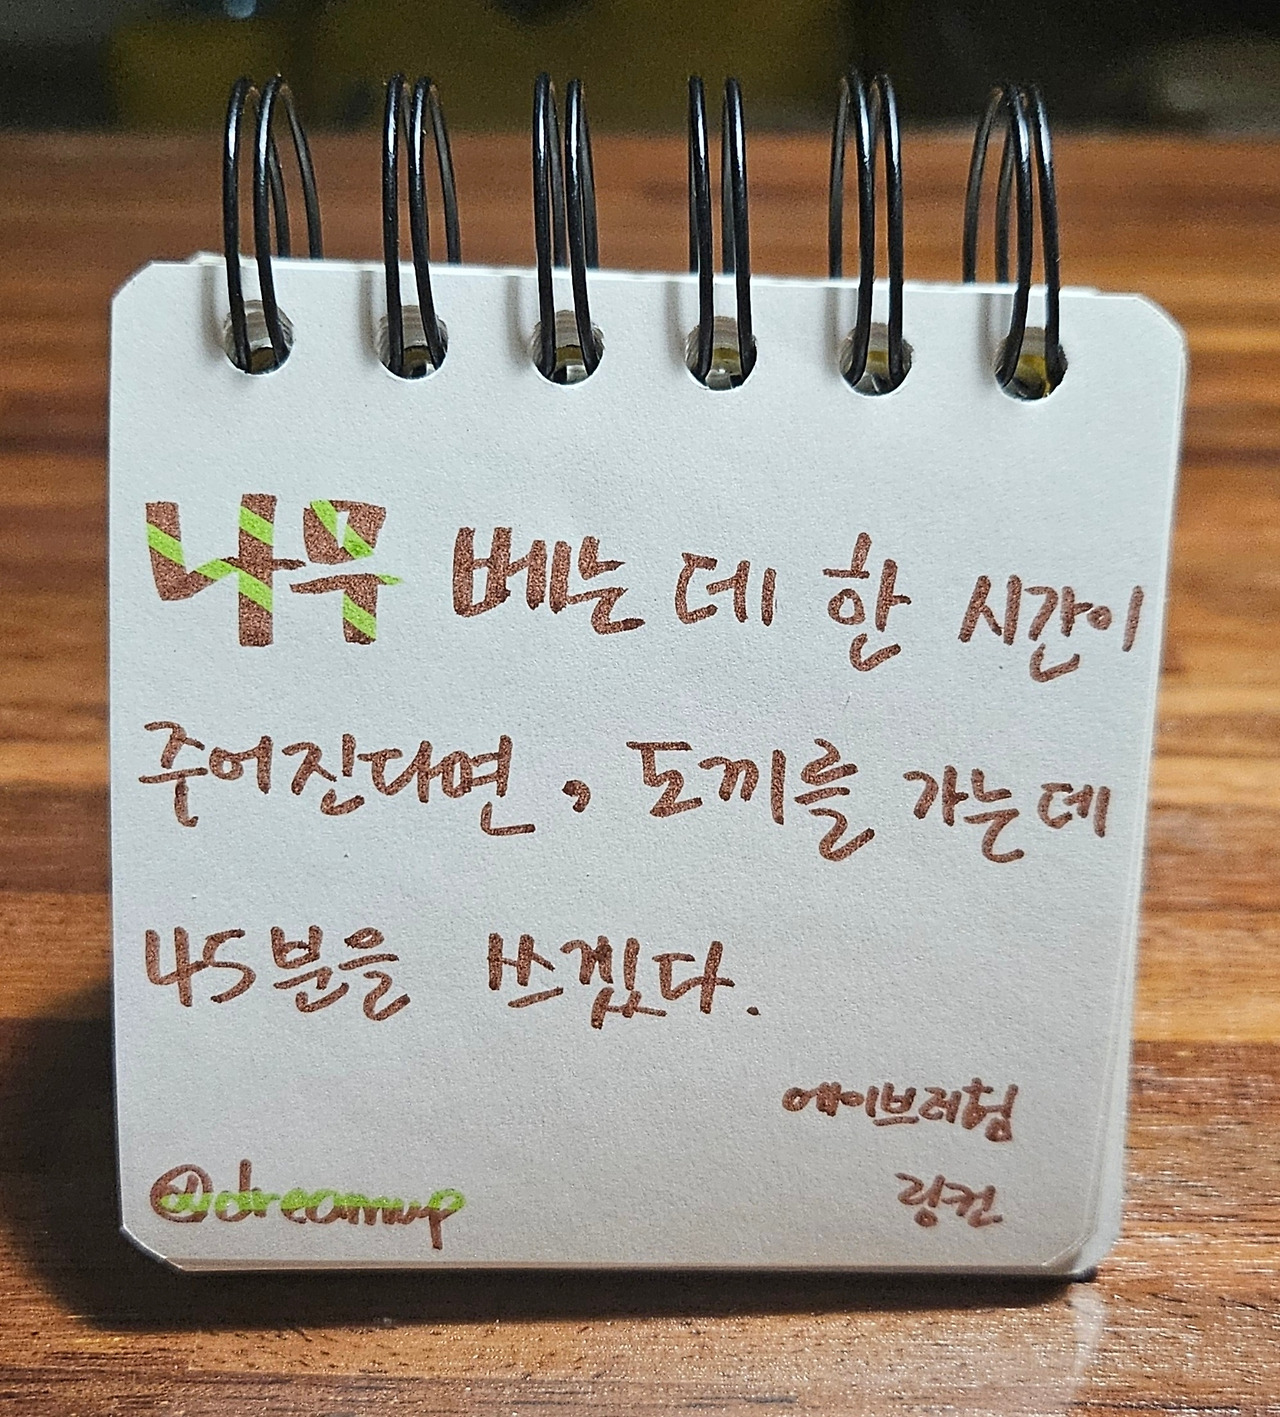 나무 베는 데 한 시간이
주어진다면, 도끼를 가는데
45분을 쓰겠다.
에이브러험
링컨
@dreamup